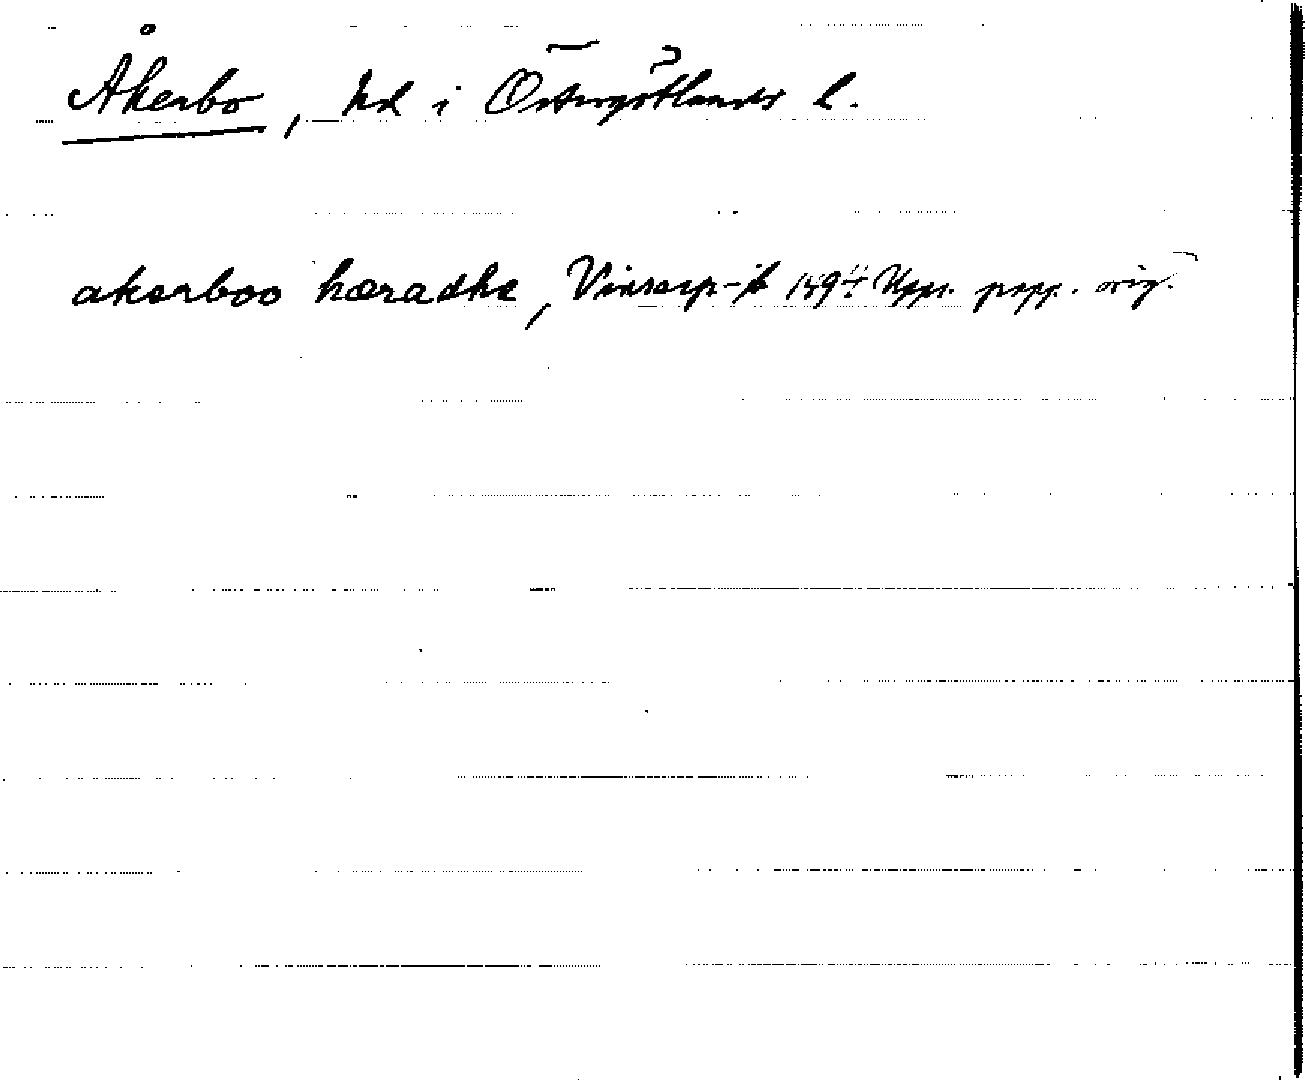 Åkerbo, hd i Östergötlands l.
akerboo hæradhe, Vinsarp-jb 159 Upps. papp. orig.